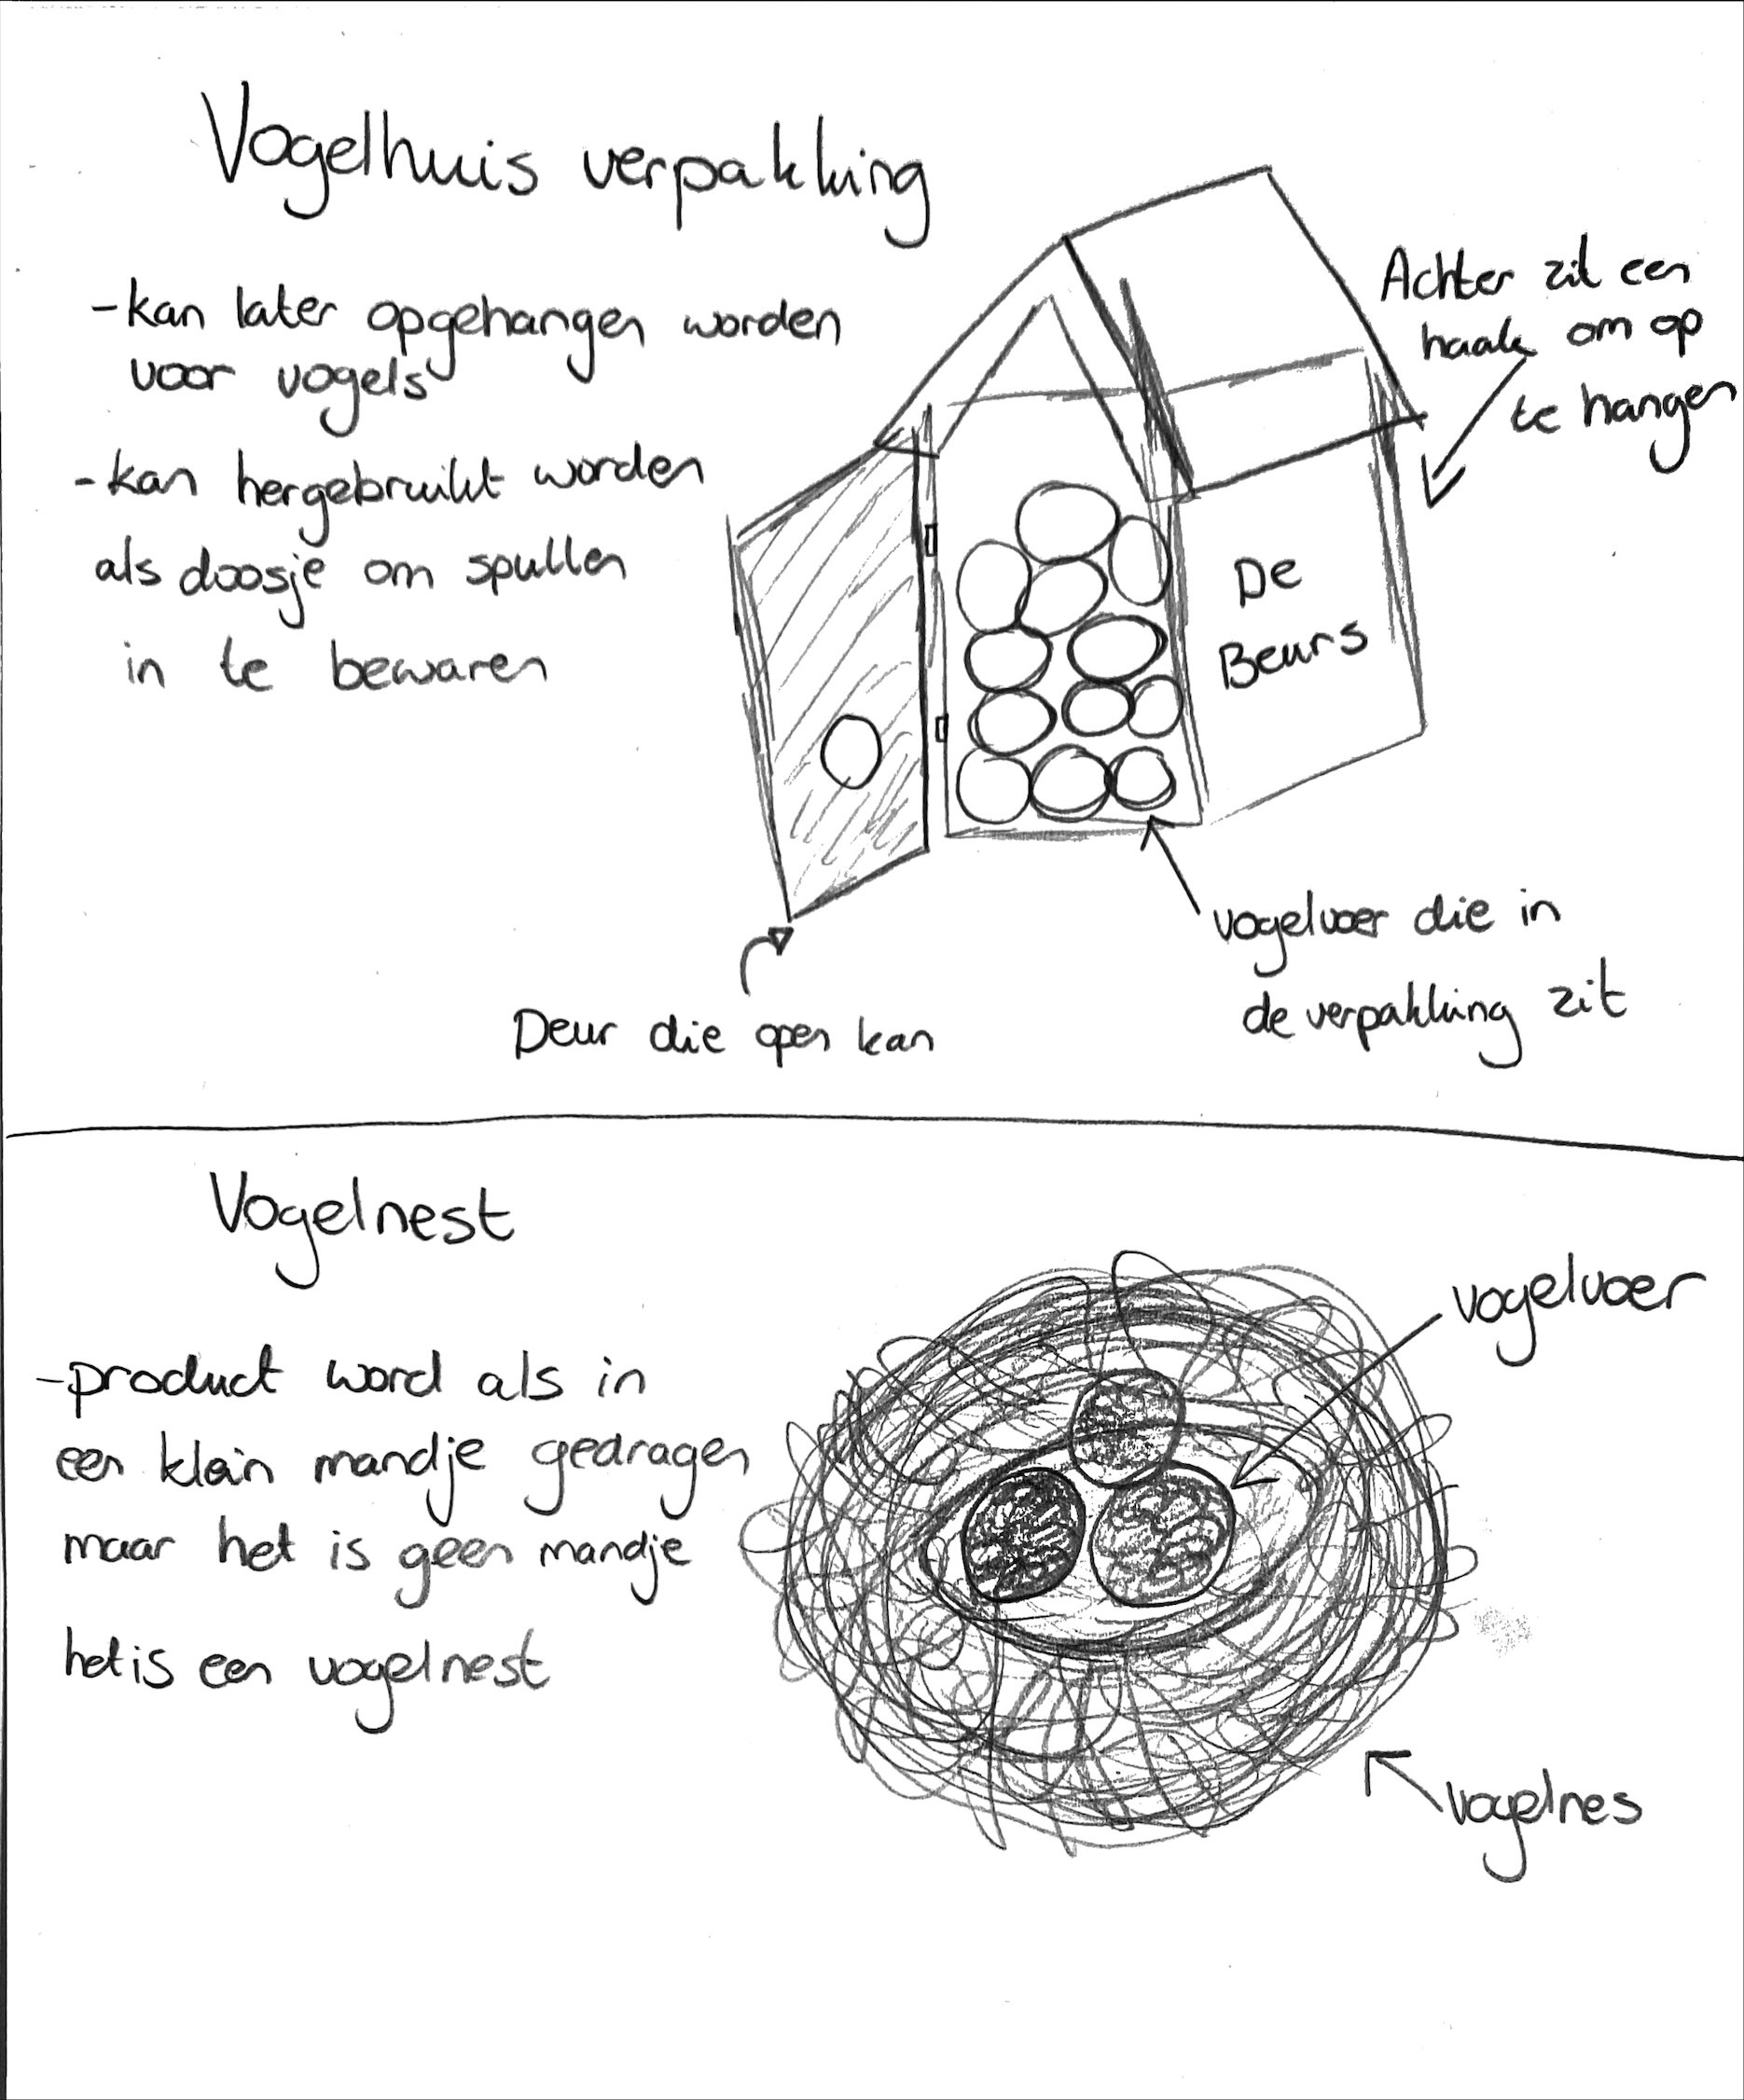 Vogelhuis verpakking
-kan later opgehangen worden
voor vogels
-kan hergebruikt worden
als doosje om spullen
in te bewaren
Achter zit een
haak om op
te hangen
De
Beurs
vogelvoer die in
de verpakking zit
Deur die open kan
Vogelnest
-product word als in
een klein mandje gedragen
maar het is geen mandje
het is een vogelnest
vogelvoer
vogelnes